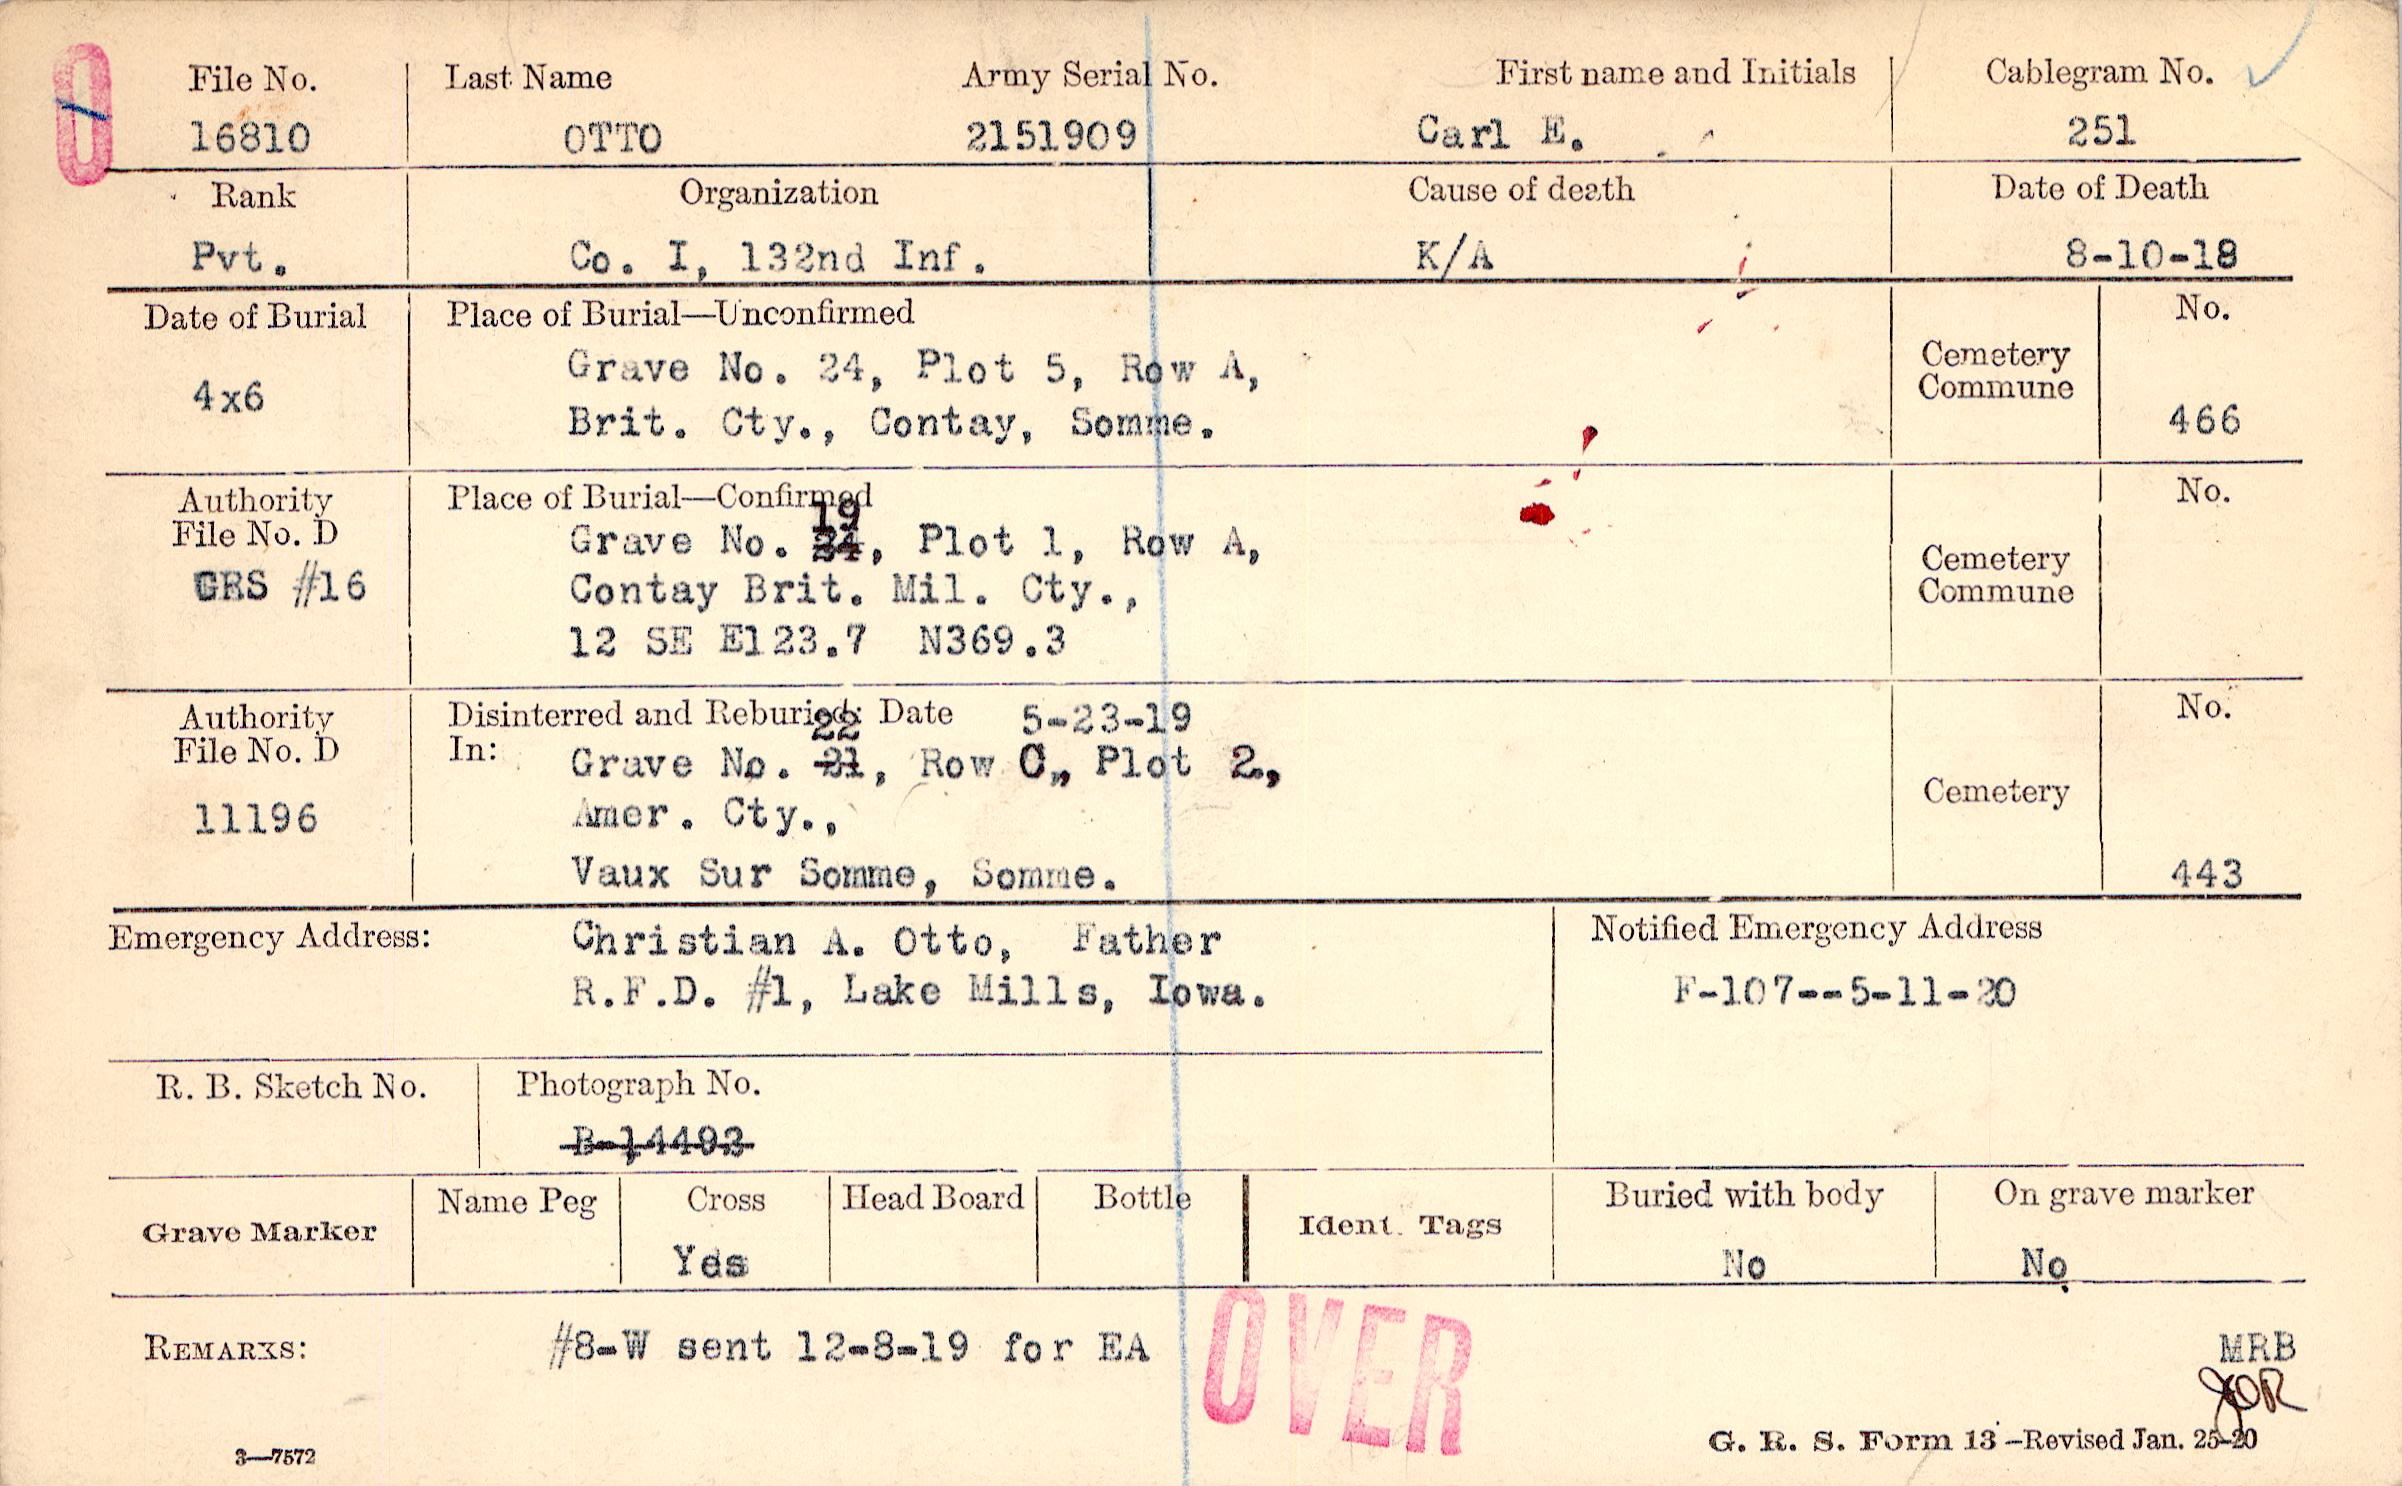 O
File No. Last Name Army Serial No. First name and Initials Cablegram No.
16810 OTTO 2151909 Carl E. 251
Rank Organization Cause of death Date of Death
Pvt. Co. I, 132nd Inf. K/A 8-10-18
Date of Burial Place of Burial—Unconfirmed No.
4x6 Grave No. 24, Plot 5, Row A, Cemetery
Brit. Cty., Contay, Somme. Commune 466
Authority Place of Burial—Confirmed No.
File No. D 19
GRS #16 Grave No. 24, Plot 1, Row A, Cemetery
Contay Brit. Mil. Cty., Commune
12 SE E123.7 N369.3
Authority Disinterred and Reburied: Date 5-23-19 No.
File No. D In: 22
11196 Grave No. 21, Row C, Plot 2, Cemetery
Amer. Cty.,
Vaux Sur Somme, Somme. 443
Emergency Address: Christian A. Otto, Father Notified Emergency Address
R.F.D. #1, Lake Mills, Iowa. F-107--5-11-20
R. B. Sketch No. Photograph No.
B-14493
Grave Marker Name Peg Cross Head Board Bottle Ident. Tags Buried with body On grave marker
Yes No No
REMARKS: #8-W sent 12-8-19 for EA OVER MRB
JOR
3—7572 G. R. S. Form 13—Revised Jan. 25-20